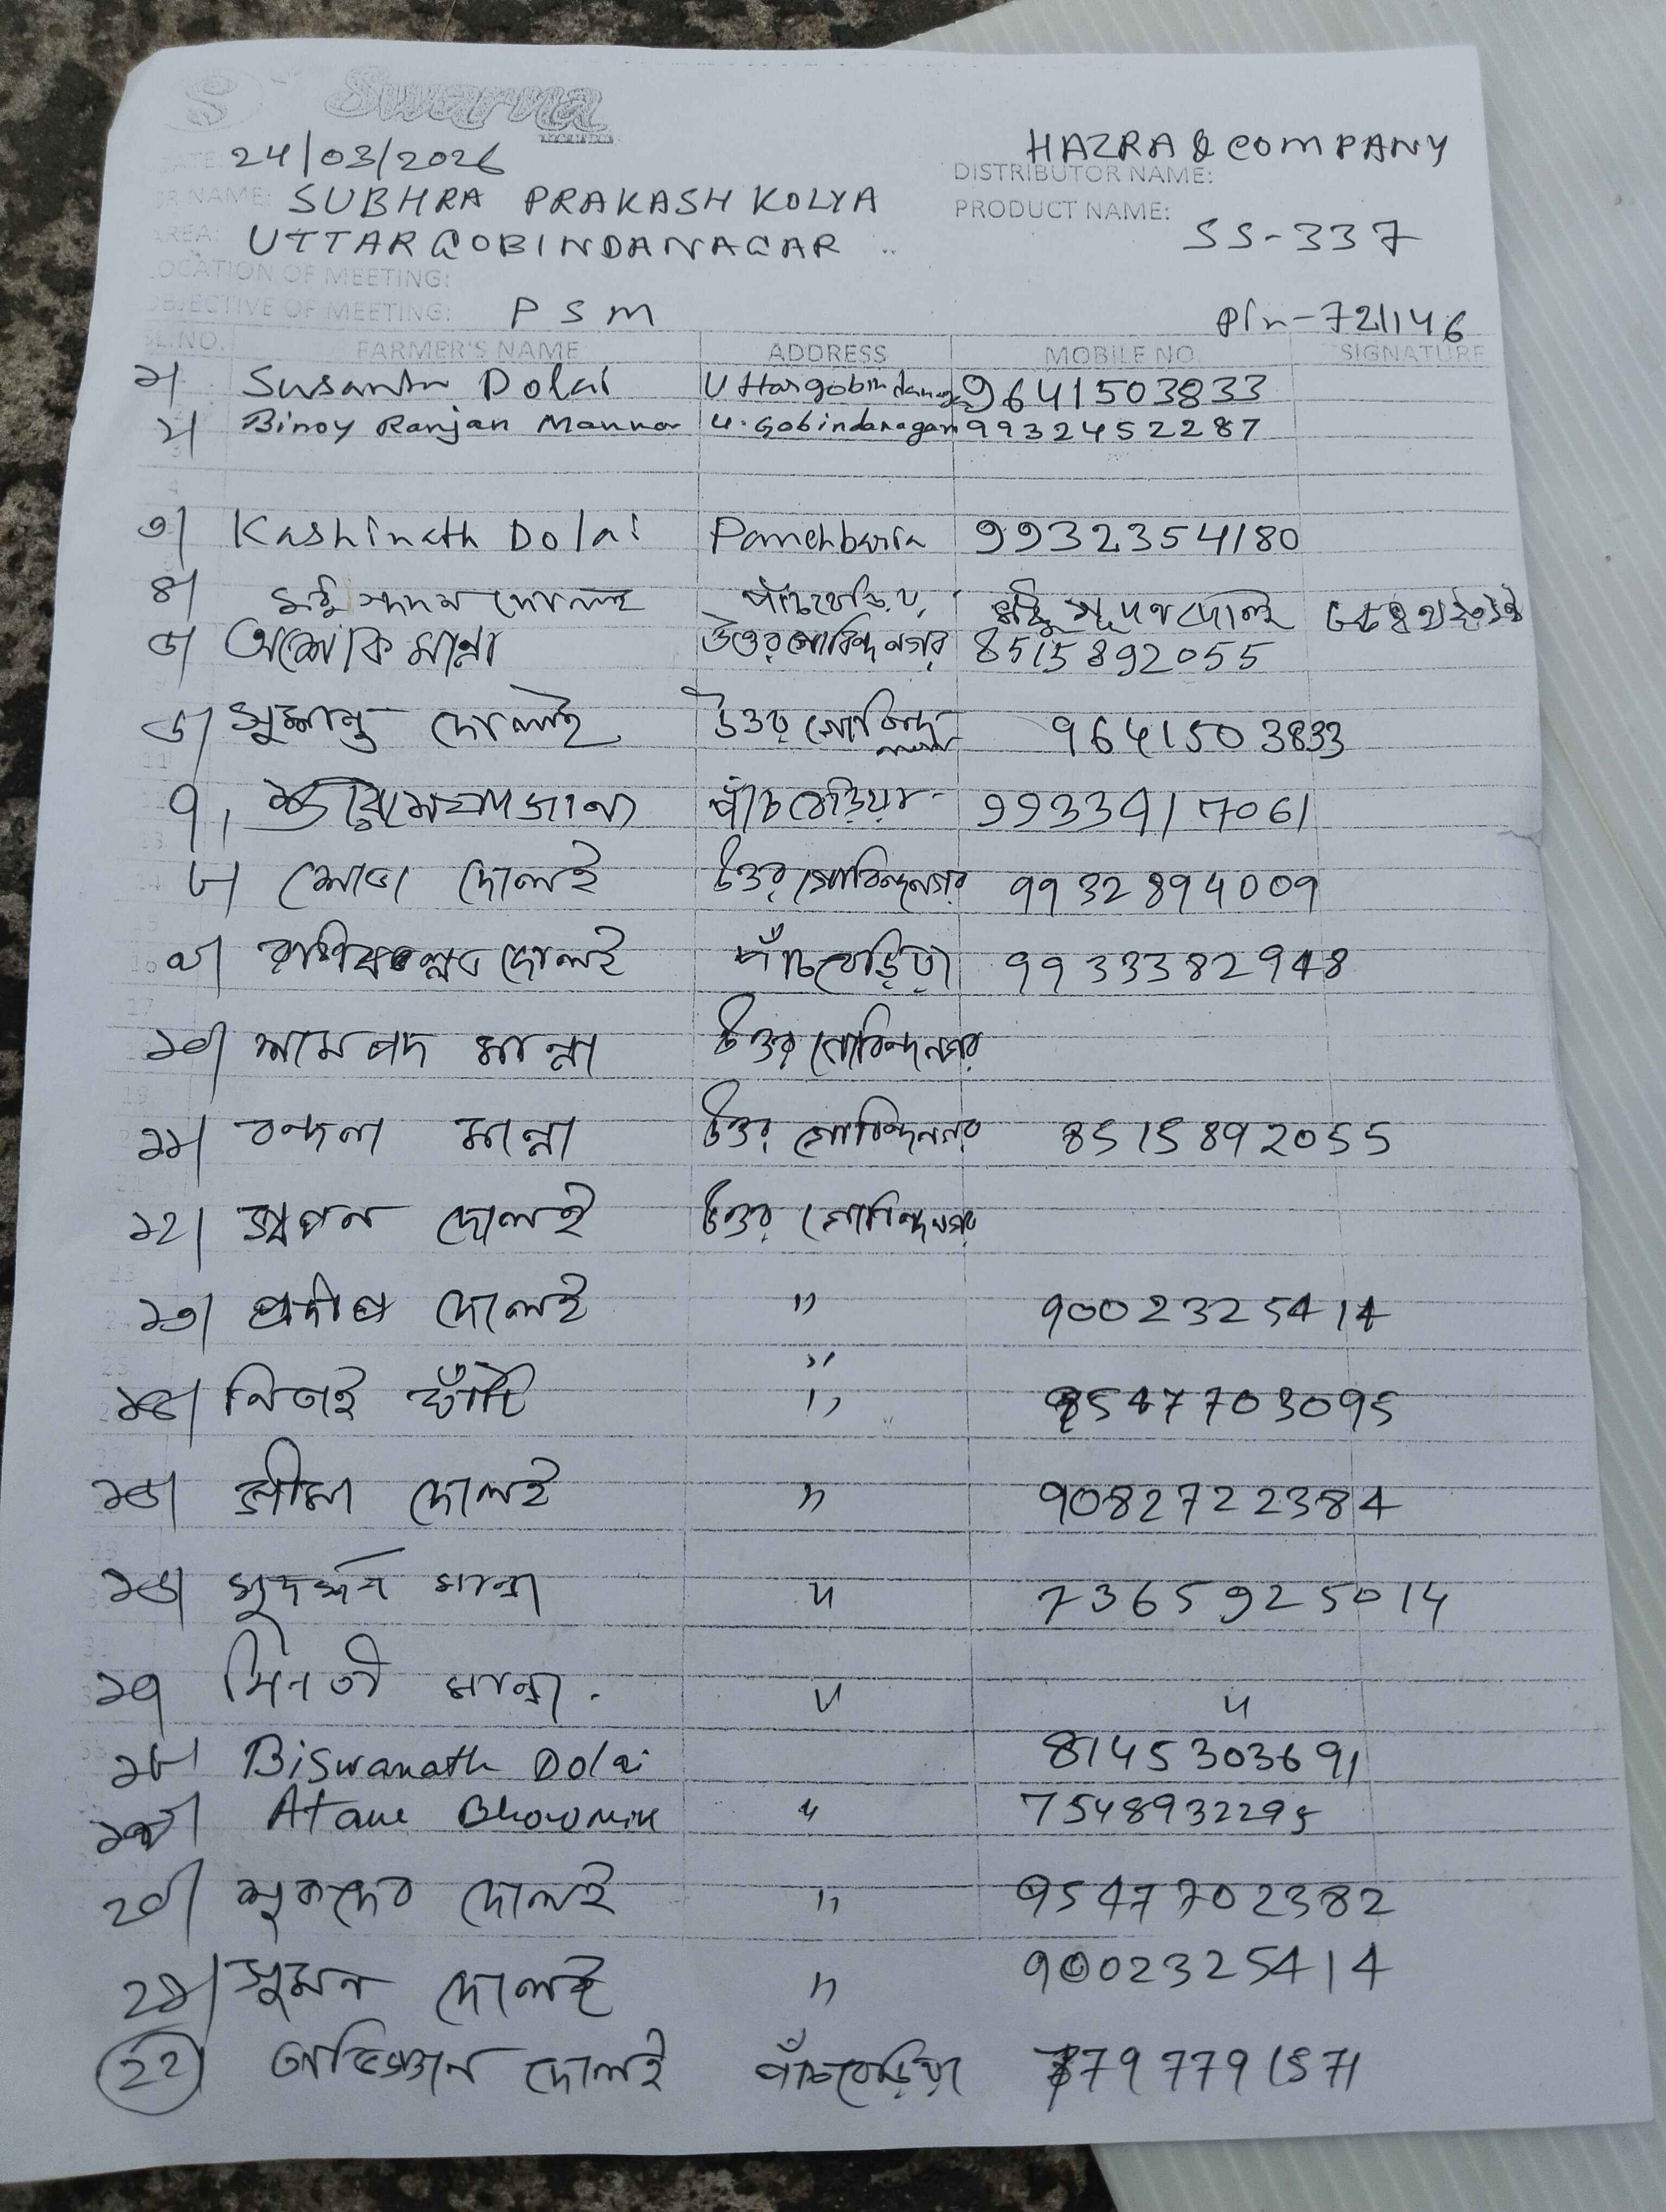 S Swarna
DATE: 24/03/2026 HAZRA & COMPANY
DISTRIBUTOR NAME:
NAME: SUBHRA PRAKASH KOLYA
PRODUCT NAME: SS-337
AREA: UTTAR GOBINDANAGAR
LOCATION OF MEETING:
OBJECTIVE OF MEETING: PSM Pin-721146
SL.NO. FARMER'S NAME ADDRESS MOBILE NO. SIGNATURE
১। Susanta Dolai Uttargobindanagar 9641503833
২। Binoy Ranjan Manna U. Gobindanagar 9932452287
৩। Kashinath Dolai Panchbaria 9932354180
৪। দোলই পাঁচবেড়িয়া মধুসূদন দোলই
৫। অশোক মান্না উত্তর গোবিন্দনগর 8515892055
৬। সুশান্ত দোলাই উত্তর গোবিন্দনগর 9641503833
৭। জানা পাঁচবেড়িয়া 9933917061
৮। শোভা দোলই উত্তর গোবিন্দনগর 9932894009
৯। দোলই পাঁচবেড়িয়া 9933382948
১০। শ্যামপদ মান্না উত্তর গোবিন্দনগর
১১। বন্দনা মান্না উত্তর গোবিন্দনগর 8515892055
১২। স্বপন দোলই উত্তর গোবিন্দনগর
১৩। প্রদীপ দোলই " 9002325414
"
১৪। নিতাই " 9547703095
১৫। সীমা দোলই " 9082722384
১৬। সুদর্শন মান্না " 7365925014
১৭ মিনতী মান্না. " "
১৮। Biswanath Dolai 8145303691
১৯। Bhowmik " 7548932295
২০। শুকদেব দোলই " 9547702382
২১। সুমন দোলই " 9002325414
২২ দোলই পাঁচবেড়িয়া 7797791571